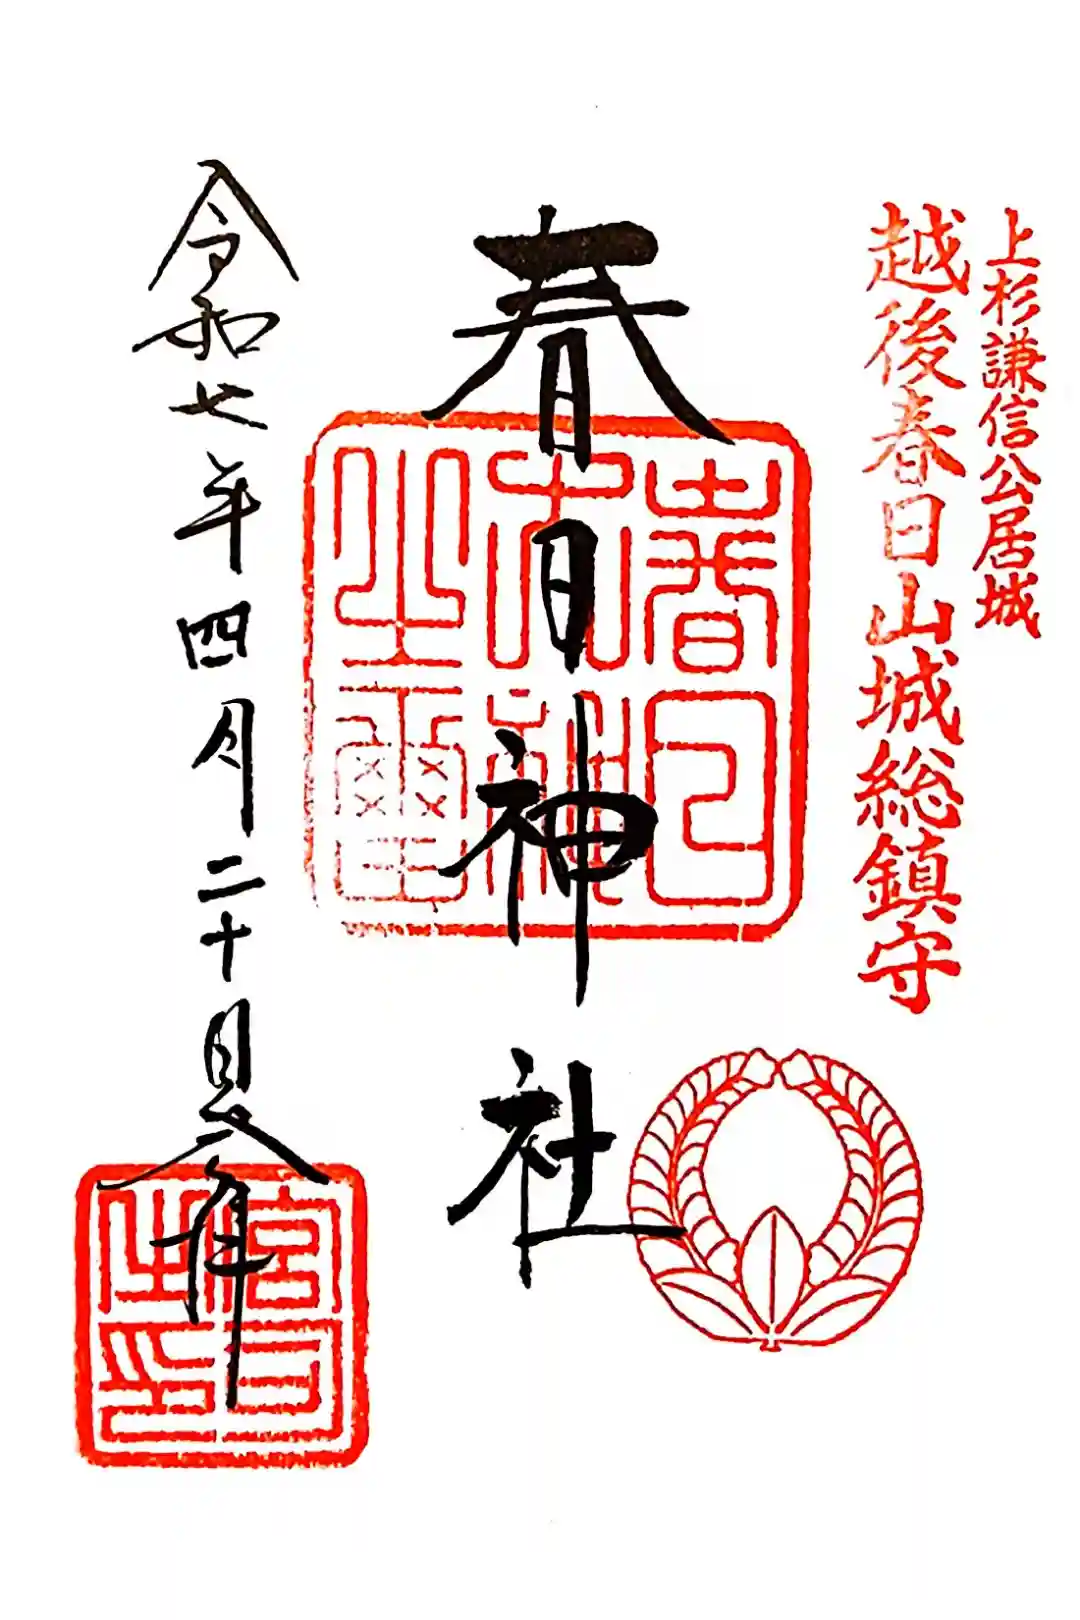 上杉謙信公居城
越後春日山城総鎮守
春日神社
春日神社之璽
令和七年四月二十日
宮司之印